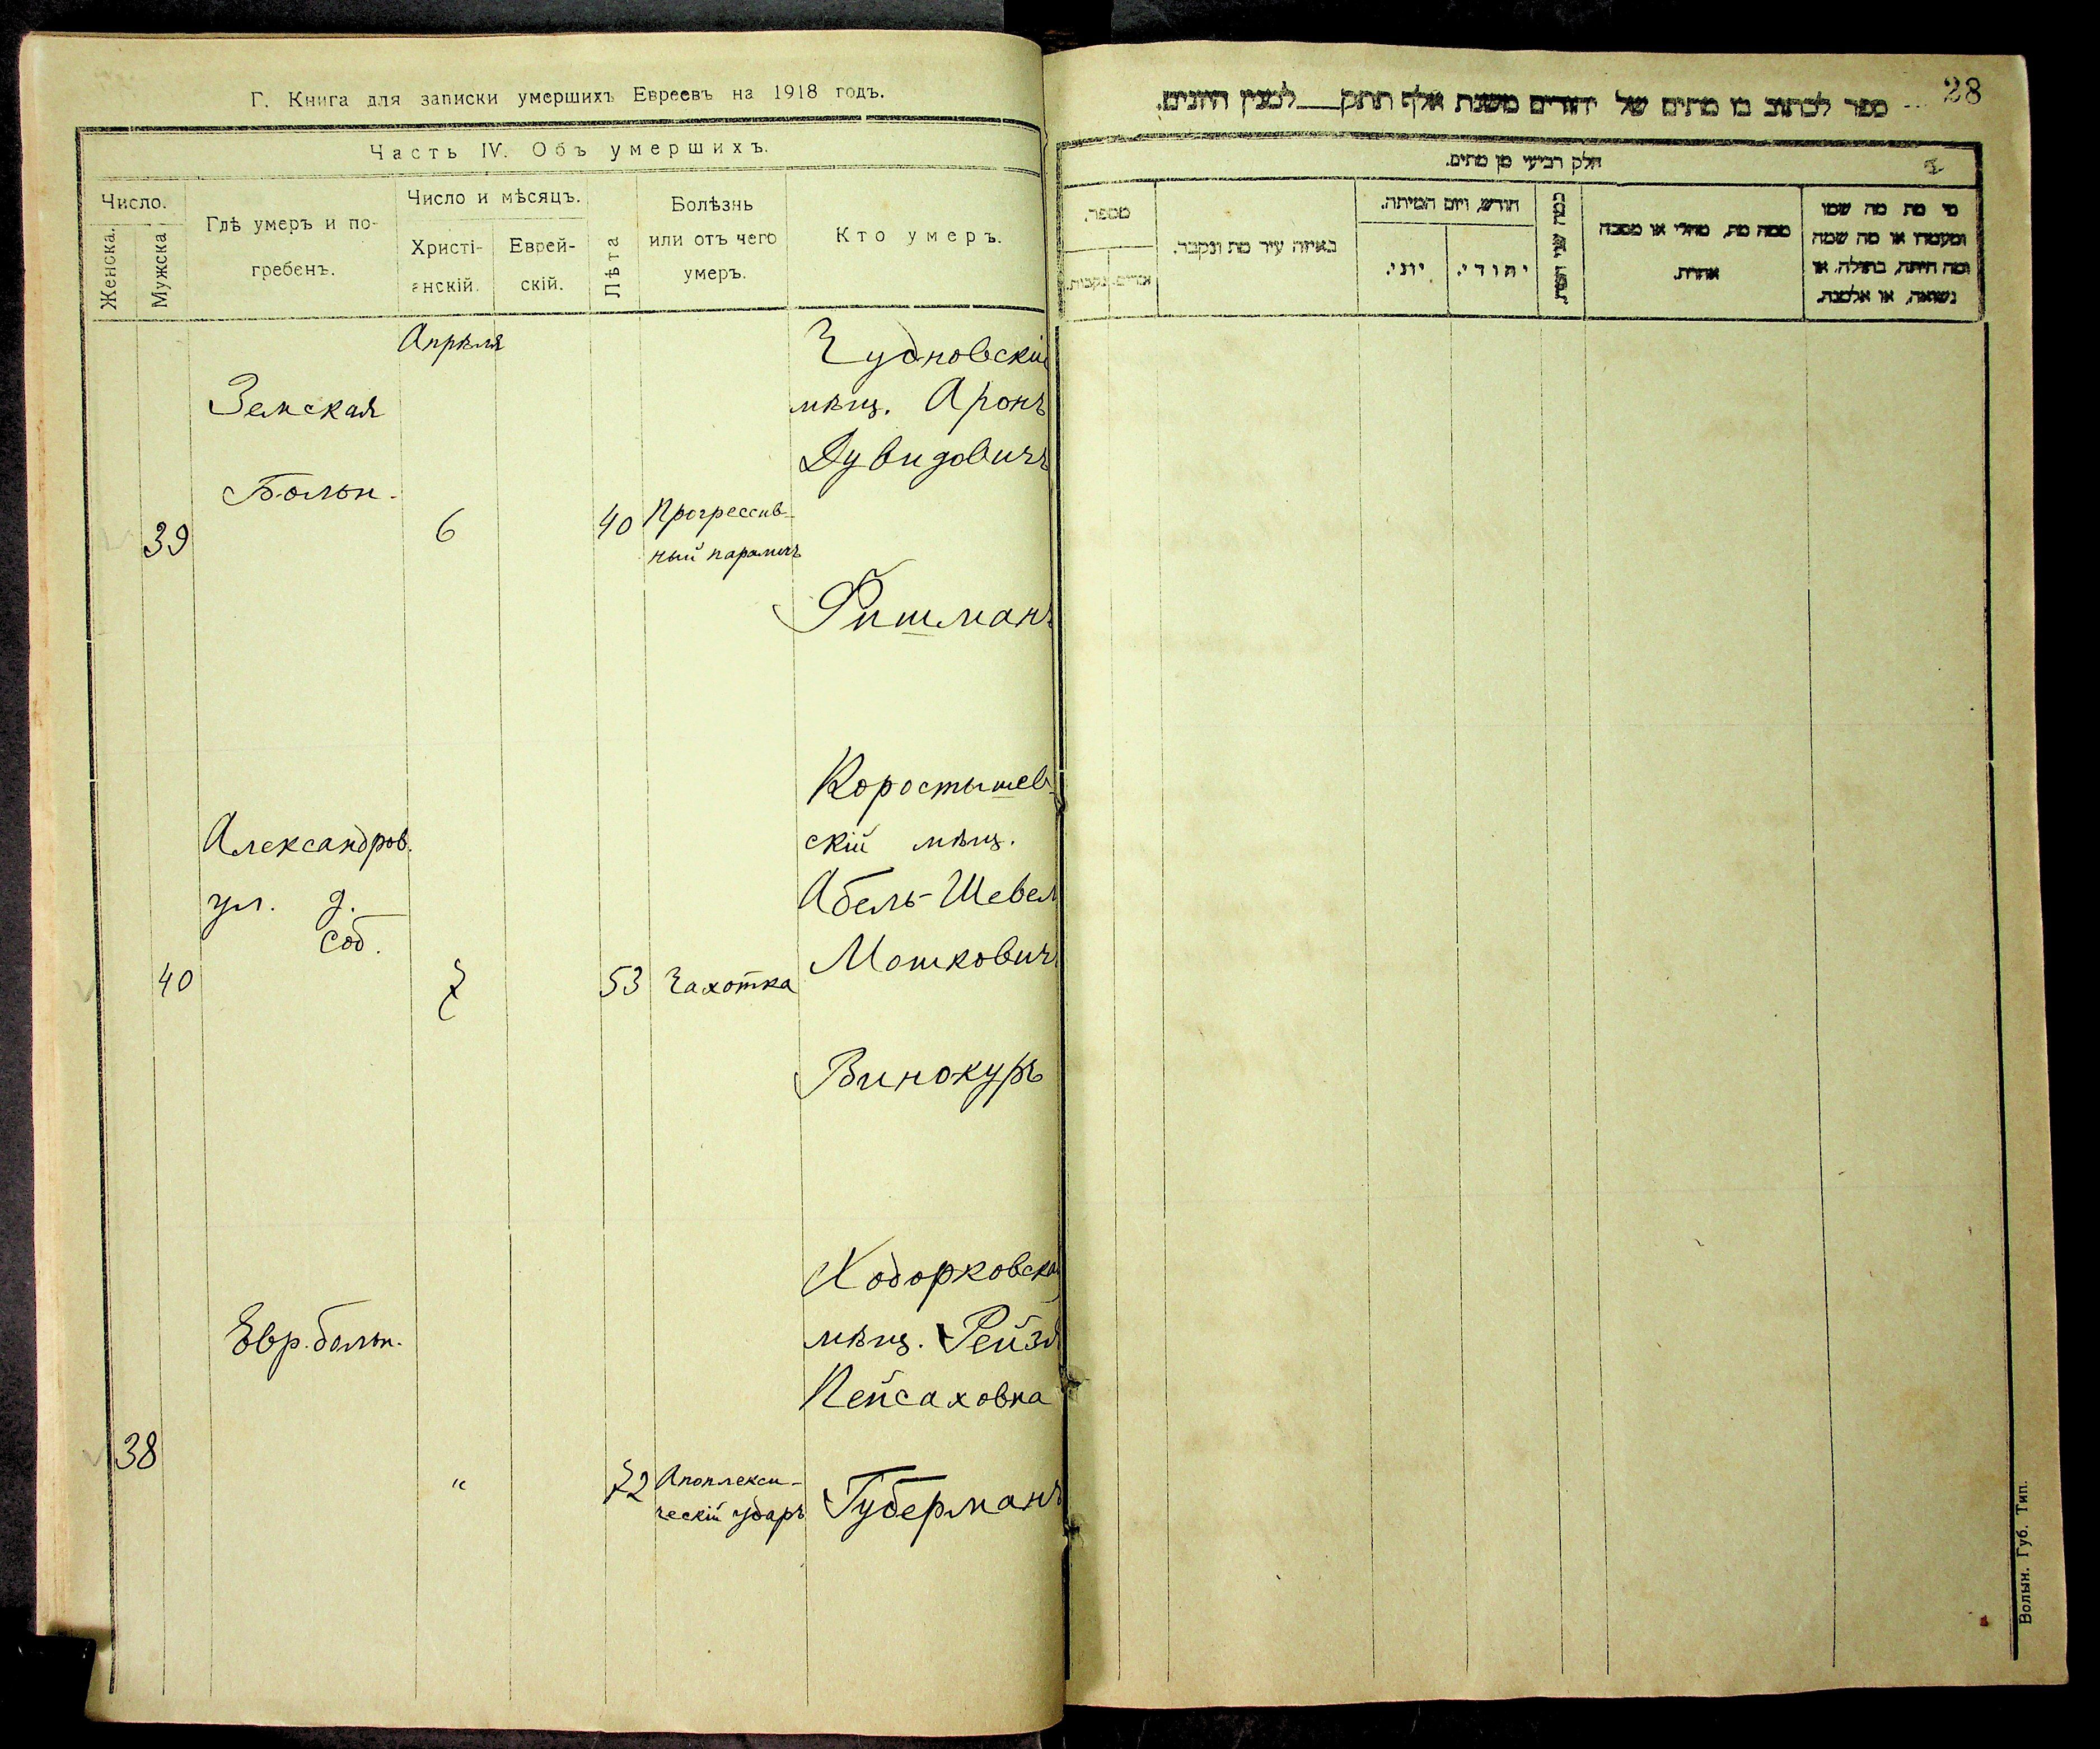 Г. Книга для записки умершихъ Евреевъ на 1918 годъ.
Часть IV. Объ умершихъ.
Число.
Женска.
Мужска
Гдѣ умеръ и по-
гребенъ.
Число и мѣсяцъ.
Христі-
анскій.
Еврей-
скій.
Лѣта
Болѣзнь
или отъ чего
умеръ.
Кто умеръ.
Апрѣля
39
Земская
Больн.
6
40
Прогрессив-
ный параличъ
Чудновскій
мѣщ. Аронъ
Дувидовичъ
Фишманъ
40
Александров.
ул. д.
соб.
7
53
Чахотка
Коростышев-
скій мѣщ.
Абель-Шевел
Мошкович
Винокуръ
38
Евр. больн.
"
72
Апоплекси-
ческій ударъ
Ходорковская
мѣщ. Рейзя
Пейсаховна
Губерманъ
28
ספר לכתוב בו מתים של יהודים משנת אלף תתק___למנין היונים.
חלק רביעי מן מתים.
מי מת מה שמו
ומעמדו או מה שמה
ומה היתה, בתולה, או
נשואה, או אלמנה.
ממה מת, מחלי או מסבה
אחרת.
כמה שני המת.
חודש, ויום המיתה.
יהודי.
יוני.
באיזה עיר מת ונקבר.
מספר.
זכרים.
נקבות.
Волын. Губ. Тип.